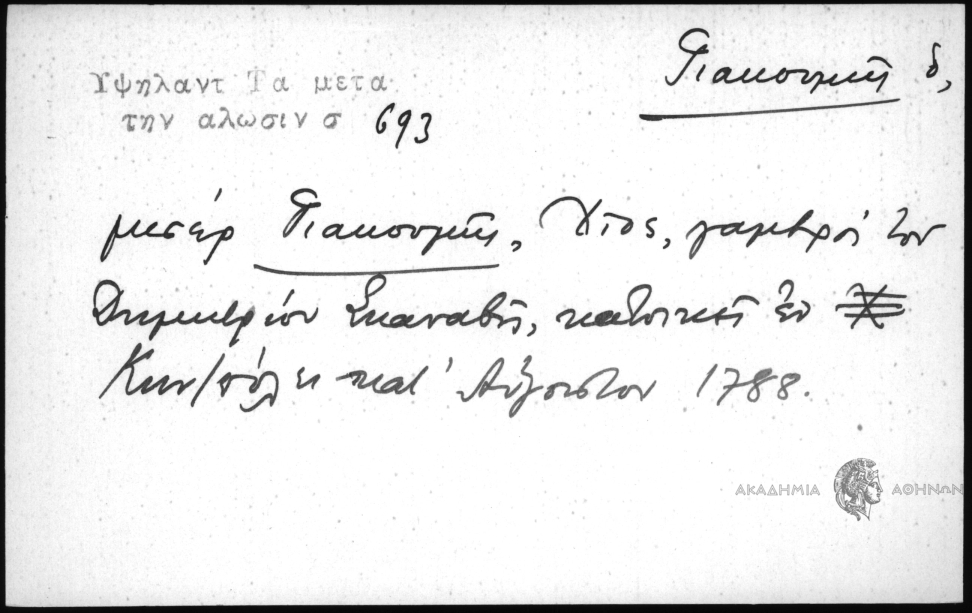 Υψηλαντ Τα μετα
την αλωσιν σ 693
Γιακουμῆς ὁ,
μισέρ Γιακουμῆς, Χῖος, γαμβρός του
Δημητρίου Σκαναβῆ, κάτοικος ἐν
Κων/πόλει κατ' Αὔγουστον 1788.
ΑΚΑΔΗΜΙΑ ΑΘΗΝΩΝ